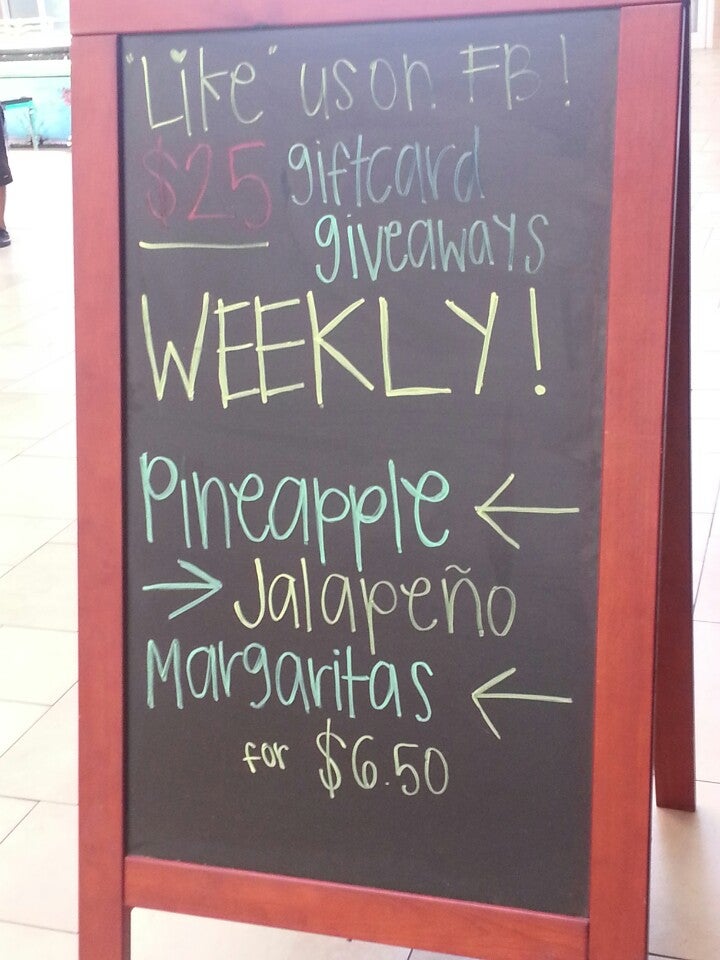 "Like" us on FB!
$25 giftcard
giveaways
WEEKLY!
Pineapple ←
→ Jalapeño
Margaritas ←
for $6.50